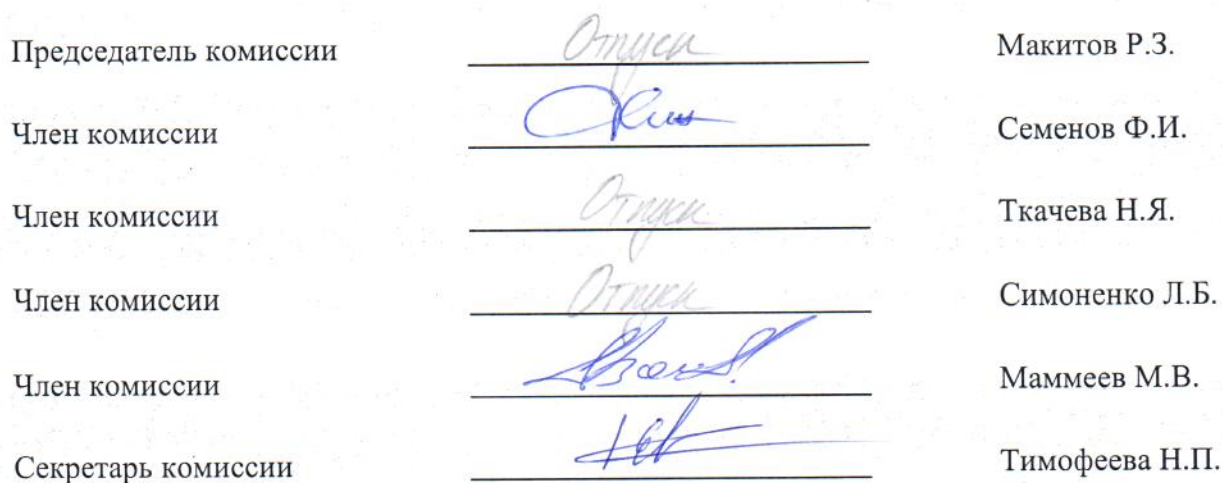 Председатель комиссии Отпуск Макитов Р.З.
Член комиссии Семенов Ф.И.
Член комиссии Отпуск Ткачева Н.Я.
Член комиссии Отпуск Симоненко Л.Б.
Член комиссии Маммеев М.В.
Секретарь комиссии Тимофеева Н.П.